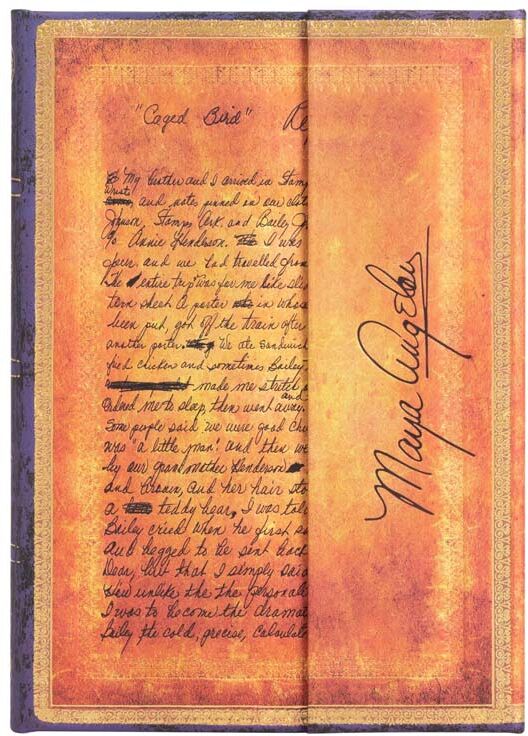 "Caged Bird" Re
My brother and I arrived in Stam
wrists and notes pinned in our clot
Johnson, Stamps Ark. and Bailey Jo
to Annie Henderson. I was
four, and we had travelled from
The entire trip was for me like sle
tern sheet. A porter in whose
been put, got off the train after
another porter. We ate sandwich
fried chicken and sometimes Bailey
made me stretch
and
ordered me to sleep, then went away.
Some people said we were good chi
was "a little man" and then we
by our grandmother Henderson
and brown, and her hair sto
a teddy bear, I was tol
Bailey cried when he first sa
and begged to be sent back
Dear, but that I simply said
how unlike the the personali
I was to become the dramat
Bailey the cold, precise, calculate
Maya Angelou